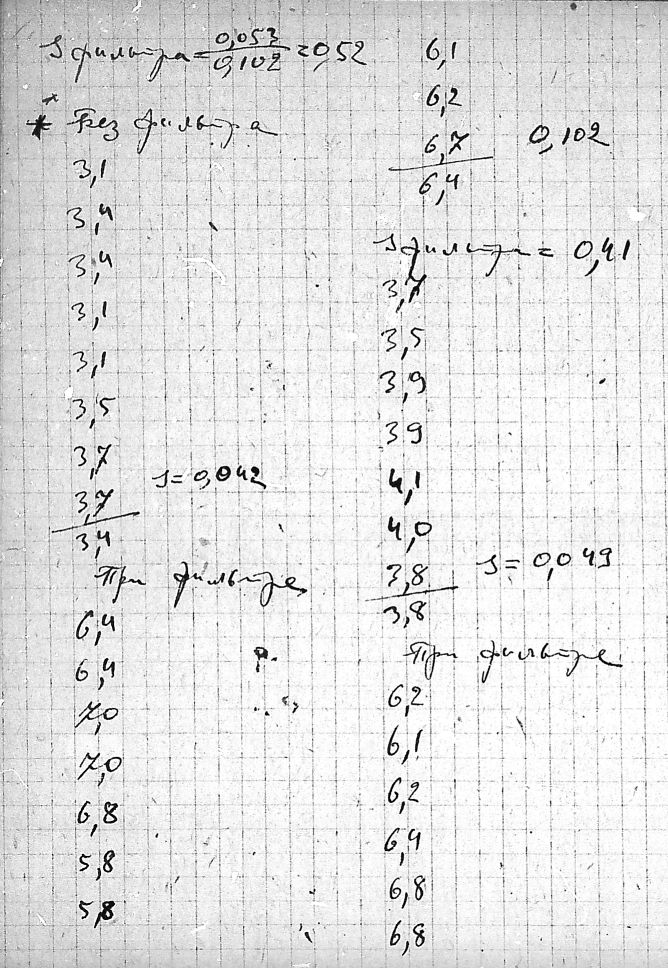 S фильтра = 0,053 / 0,102 = 0,52
* Без фильтра
3,1
3,4
3,4
3,1
3,1
3,5
3,7
3,7 S = 0,042
3,4
При фильтре
6,4
6,4
7,0
7,0
6,8
5,8
5,8
6,1
6,2
6,7 0,102
6,4
S фильтра = 0,41
3,7
3,5
3,9
39
4,1
4,0
3,8 S = 0,049
3,8
При фильтре
6,2
6,1
6,2
6,4
6,8
6,8